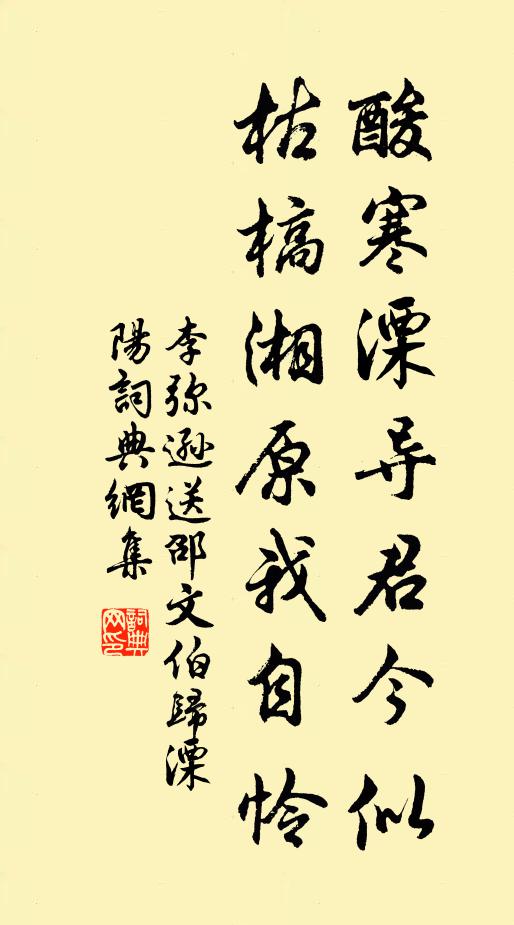 酸寒溧导君今似
枯槁湘原我自怜
李弥逊送邵文伯歸溧
陽詞典網集
詞典
网印